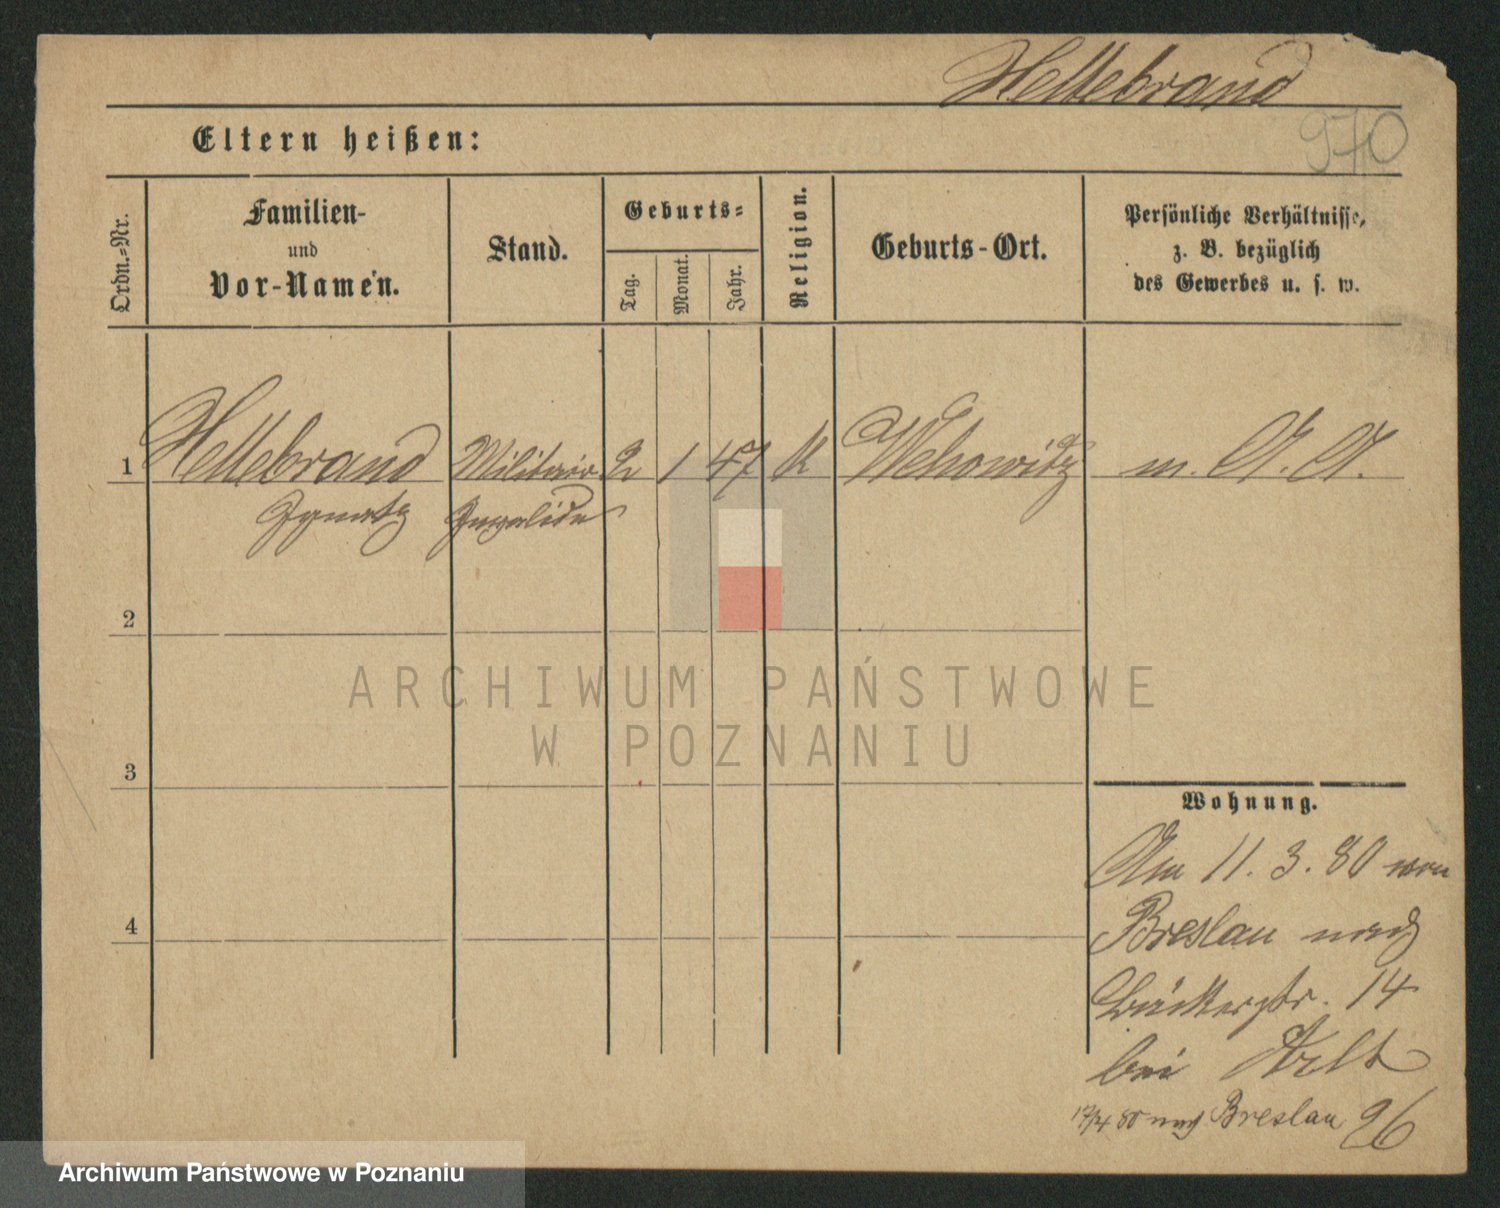 Hettebrand
970
Eltern heißen:
Ordn.-Nr.
Familien-
und
Vor-Namen.
Stand.
Geburts-
Tag.
Monat.
Jahr.
Religion.
Geburts-Ort.
Persönliche Verhältnisse,
z. B. bezüglich
des Gewerbes u. s. w.
1 Hettebrand Militair 2 1 47 K Wehowitz m. A. A.
Ignatz Invalide
2
ARCHIWUM PAŃSTWOWE
W POZNANIU
3
Wohnung.
Am 11. 3. 80 von
Breslau nach
4
Bäckerstr. 14
bei Arlt
17/4 80 nach Breslau 26
Archiwum Państwowe w Poznaniu